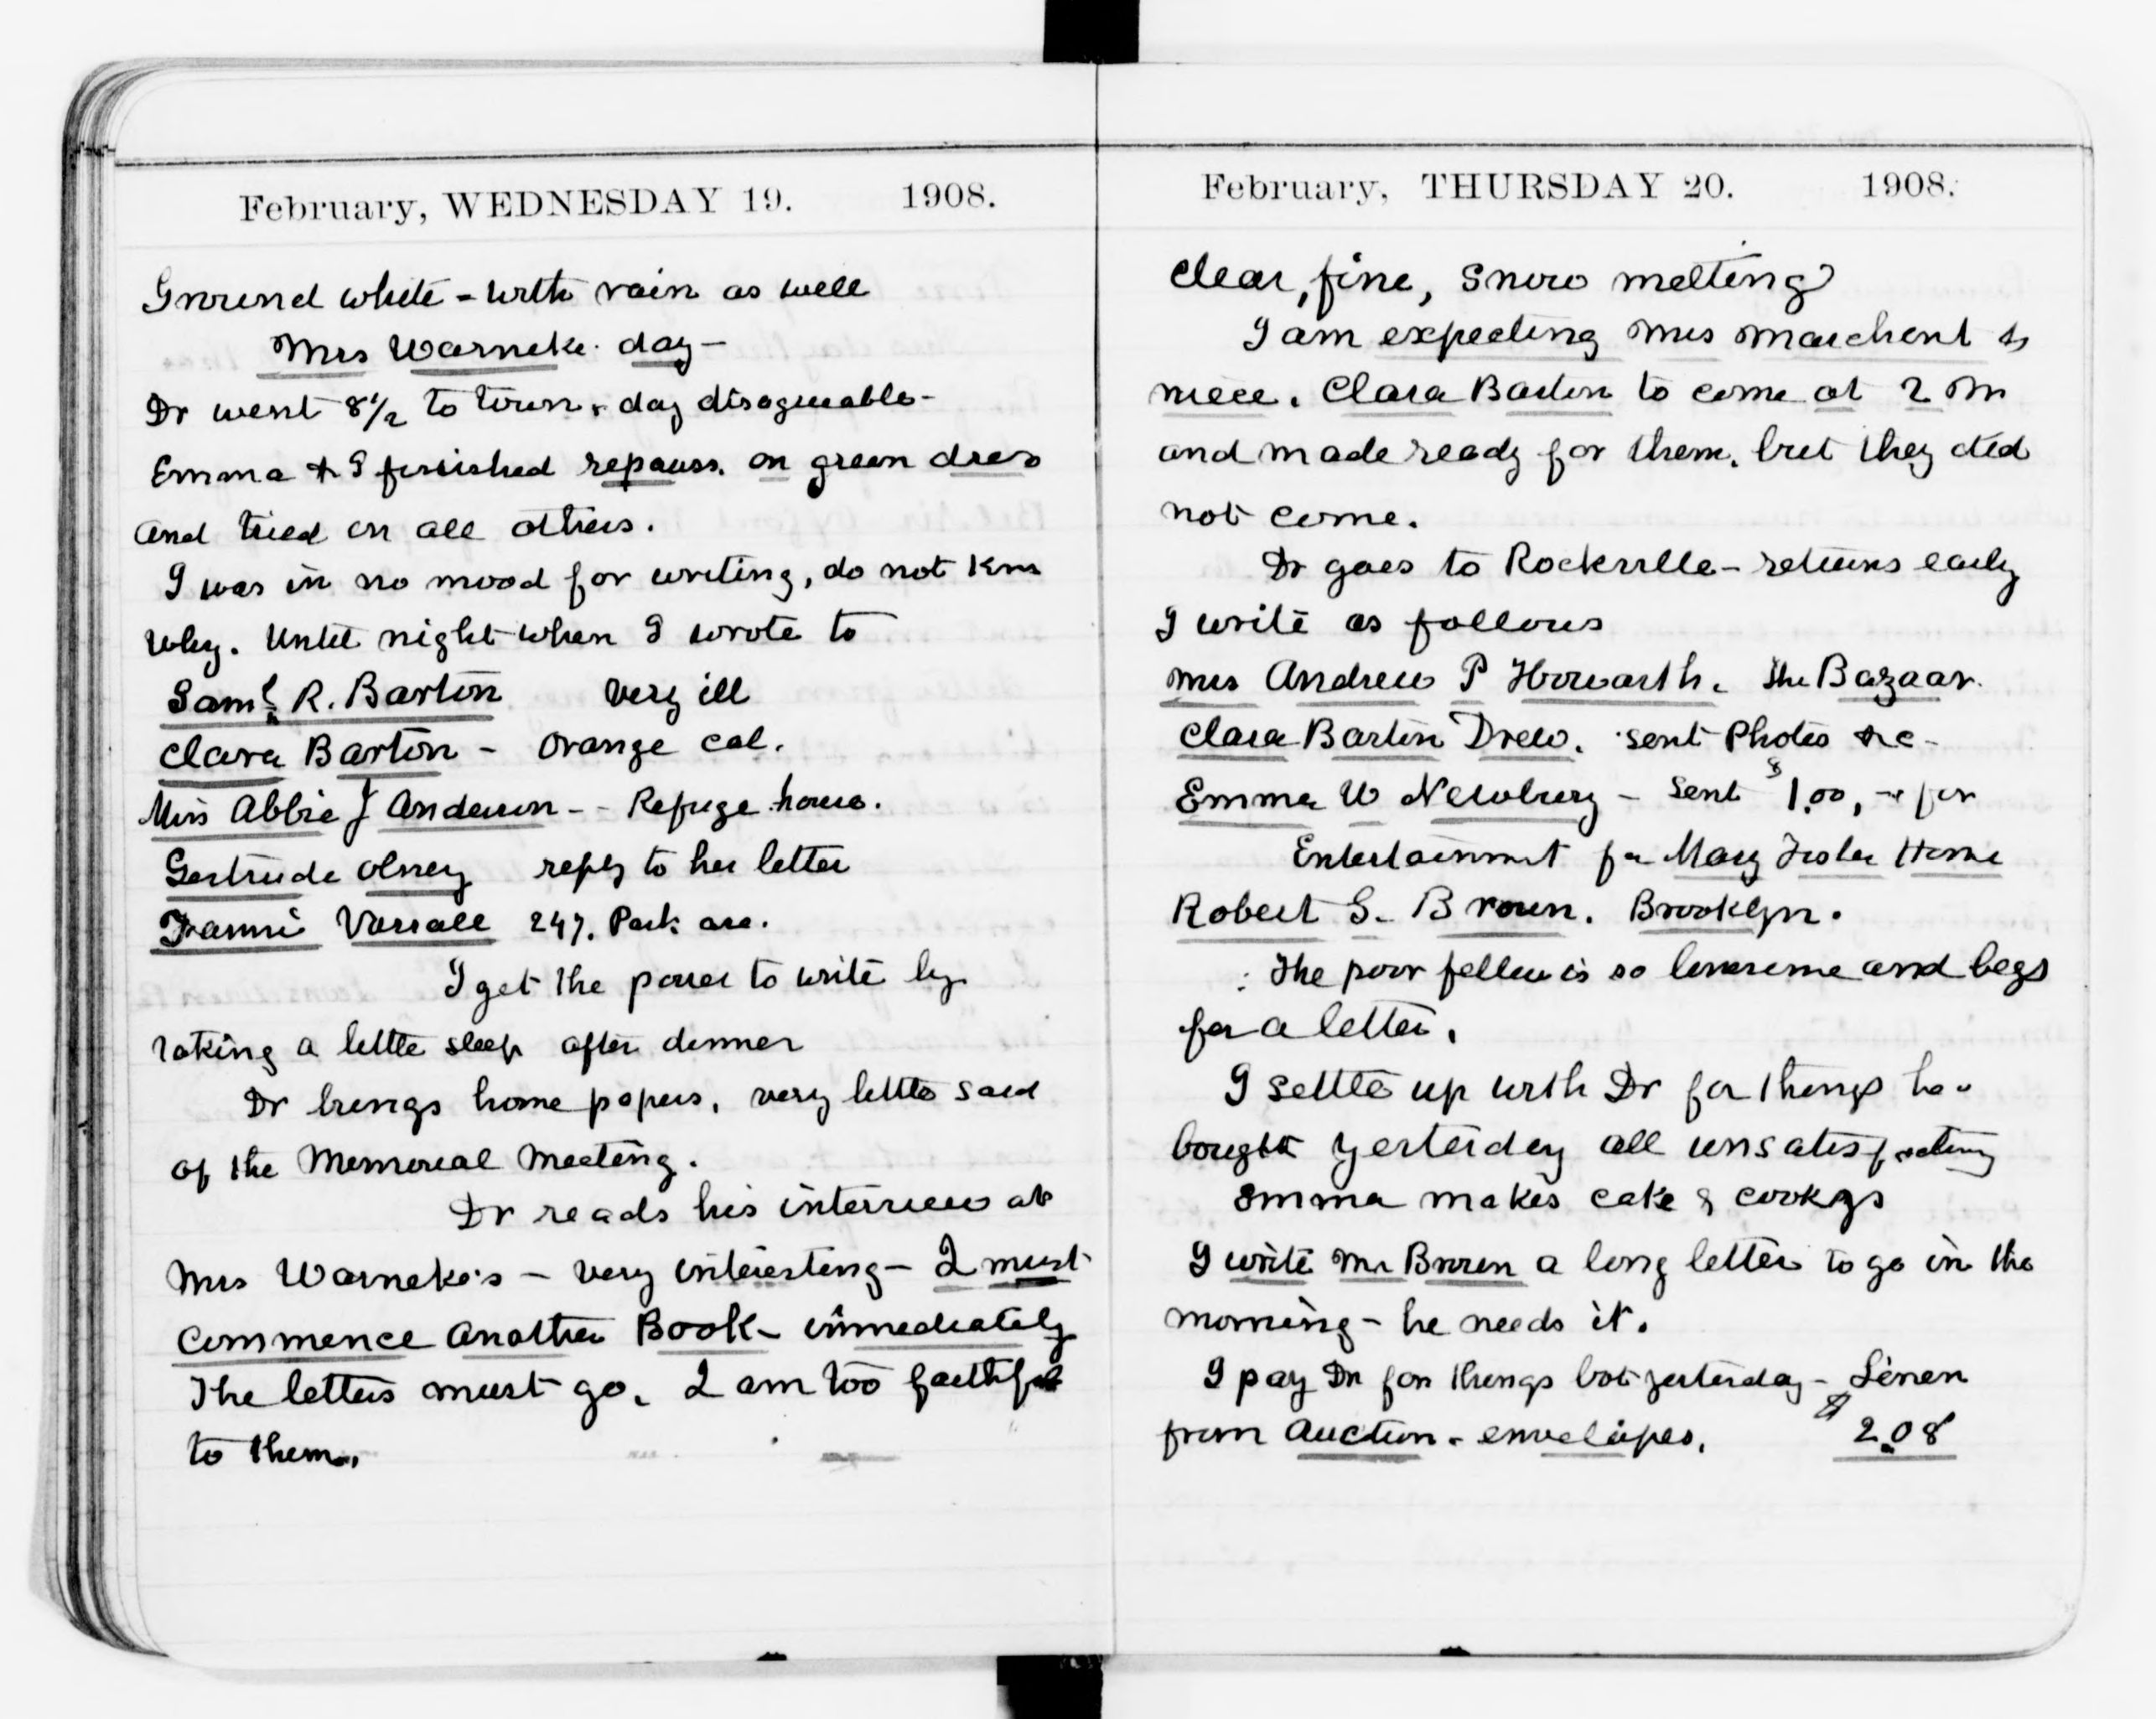 February, WEDNESDAY 19. 1908.
Ground white - with rain as well
Mrs Warneke day -
Dr went 8 1/2 to town, day disagreeable -
Emma & I finished repairs on green dress
and tried on all others.
I was in no mood for writing, do not know
why. Until night when I wrote to
Saml R. Barton very ill
Clara Barton - Orange Cal.
Miss Abbie J Anderson - - Refuge house.
Gertrude Olney reply to her letter
Fannie Vassall 247. Park ave.
I get the power to write by
taking a little sleep after dinner
Dr brings home papers, very little said
of the Memorial Meeting.
Dr reads his interview at
Mrs Warneke's - very interesting - I must
Commence Another Book - immediately
The letters must go. I am too faithful
to them.
February, THURSDAY 20. 1908.
Clear, fine, snow melting
I am expecting Mrs Marchent &
niece. Clara Barton to come at 2 M
and made ready for them, but they did
not come.
Dr goes to Rockville - returns early
I write as follows
Mrs Andrew P Howarth. The Bazaar.
Clara Barton Drew. sent Photos &c -
Emma W Newbury - Sent $1.00, - for
Entertainmnt for Mary Fisher Home
Robert S. Brown. Brooklyn.
The poor fellow is so lonesome and begs
for a letter.
I settle up with Dr for things he
bought yesterday all unsatisfactory
Emma makes cake & cookys
I write Mr Brown a long letter to go in the
morning - he needs it.
I pay Dr for things bot yesterday - Linen
from Auction - envelopes. $2.08